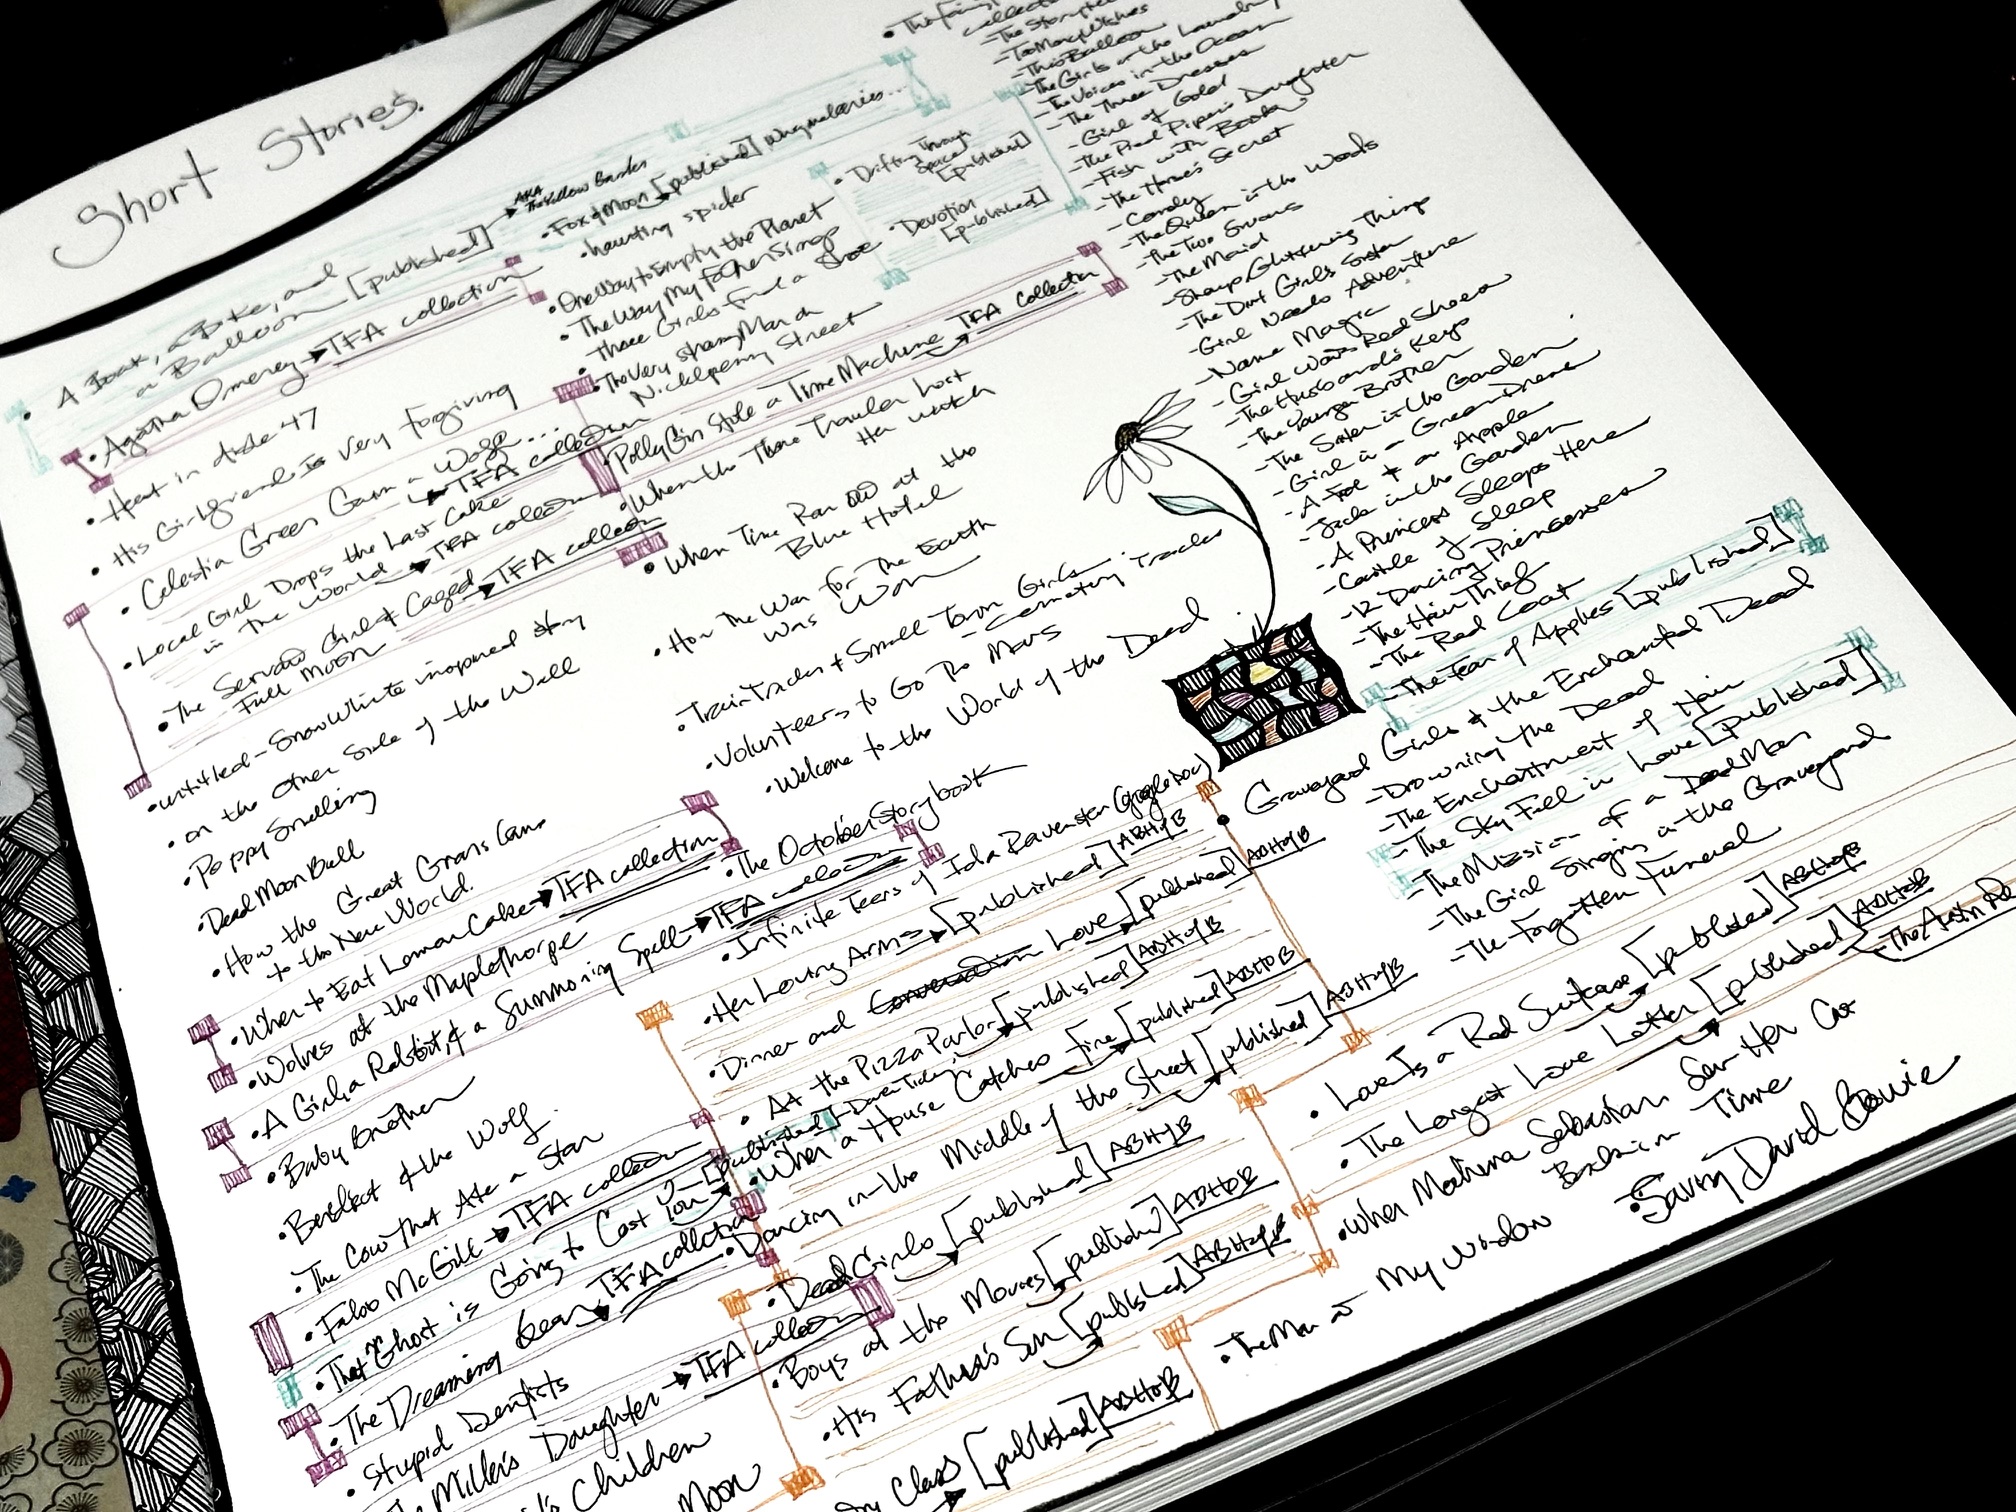 Short Stories.
• A Book, a Bike, and
a Balloon [published]
AKA The Yellow Books
• Agatha Omeney → TFA collection
• Heart in Aisle 47
• His Girlfriend Is Very Forgiving
• Celestia Green Gave a Wolf...
→ TFA collection
• Local Girl Drops the Last Cake
in the World → TFA collection
• The Servant Girl & Caged
Full Moon → TFA collection
• untitled - Snow White inspired story
• on the Other Side of the Wall
• Poppy Smelling
• Dead Moon Ball
• How the Great Grans Came
to the New World.
• When to Eat Lemon Cake → TFA collection
• Wolves at the Maplethorpe
• A Girl, a Rabbit, & a Summoning Spell → TFA collection
• Baby Brother
• Benedict & the Wolf
• The Cow That Ate a Star
• Faloo McGill → TFA collection
• That Ghost is Going to Cost You [published]
• The Dreaming Bear → TFA collection
• Stupid Dentists
The Miller's Daughter → TFA collection
Children
Moon
• Fox & Moon [published]
• haunting spider
• One Way to Empty the Planet
• The Way My Father Sings
• Three Girls Find a Shoe
• The Very Strange Man on
Nicklpenny Street
• Polly Gin Stole a Time Machine → TFA collection
• When the Time Traveler Lost
Her Watch
• When Time Ran Out at the
Blue Hotel
• How The War for The Earth
Was Won
• Train Tracks & Small Town Girls
- Cemetery Tracks
• Volunteers to Go To Mars
• Welcome to the World of the Dead
• The October Storybook
• Infinite Tears of Ida Ravenster (google doc)
• Her Loving Arms → [published] ABHofB
• Dinner and Conversation Love → [published] ABHofB
• At the Pizza Parlor → [published] ABHofB
• When a House Catches Fire [published] ABHofB
• Dancing in the Middle of the Street [published] ABHofB
• Dead Girls [published] ABHofB
• Boys at the Movies [published] ABHofB
• His Father's Son [published] ABHofB
Class [published] ABHofB
• Drifting Through
Space
[published]
• Devotion
[published]
- The Storyteller
- Too Many Wishes
- The Balloon
- The Girls in the Laundry
- The Voices in the Ocean
- The Three Dresses
- Girl of Gold
- The Pied Piper's Daughter
- Fish with Books
- The Horse's Secret
- Candy
- The Queen in the Woods
- The Two Swans
- The Maid
- Sharp, Glittering Things
- The Dirt Girl's Sister
- Girl Needs Adventure
- Name Magic
- Girl Wants Red Shoes
- The Husband's Keys
- The Younger Brother
- The Sister in the Garden
- Girl in a Green Dress
- A Fox & an Apple
- Jack in the Garden
- A Princess Sleeps Here
- Castle of Sleep
- 12 Dancing Princesses
- The Hair Thief
- The Red Coat
- The Fear of Apples [published]
• Graveyard Girls & the Enchanted Dead
- Drowning the Dead
- The Enchantment of Hair
- The Sky Fell in Love [published]
- The Mission of a Dead Man
- The Girl Sings in the Graveyard
- The Forgotten Funeral
• Love Is a Red Suitcase [published] ABHofB
• The Longest Love Letter [published] ABHofB
- The Austin
• When Machina Sebastian Sent Her Car
Back in Time
• Saving David Bowie
• The Man at My Window